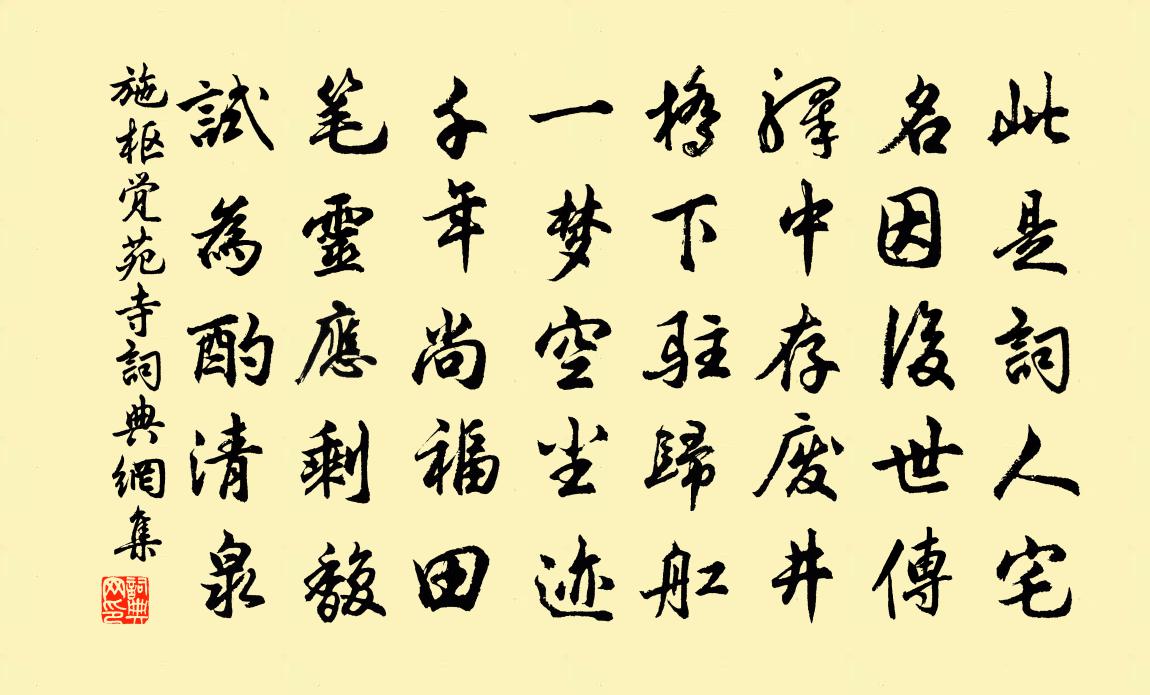 此是詞人宅
名因後世傳
釋中存废井
橋下驻歸舡
一梦空尘迹
千年尚福田
笔靈應剩馥
試為酌清泉
施枢觉苑寺詞典網集
詞典
网印